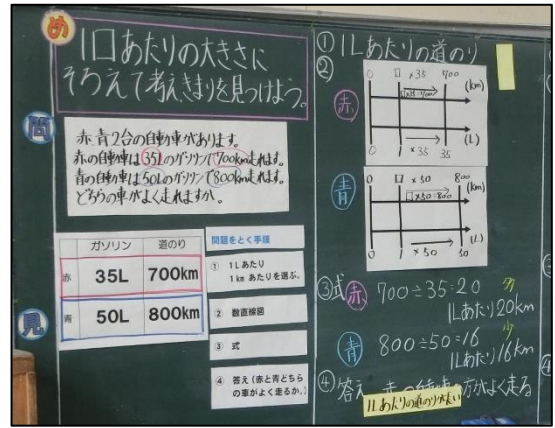 め
1口あたりの大きさに
そろえて考え、きまりを見つけよう。
問
赤、青2台の自動車があります。
赤の自動車は35Lのガソリンで700km走れます。
青の自動車は50Lのガソリンで800km走れます。
どちらの車がよく走れますか。
見
ガソリン 道のり
赤 35L 700km
青 50L 800km
問題をとく手順
① 1Lあたり
1kmあたりを選ぶ。
② 数直線図
③ 式
④ 答え(赤と青どちら
の車がよく走るか。)
①1Lあたりの道のり
②
赤
0 □ ×35 700 (km)
□×35=700
0 1 ×35 35 (L)
青
0 □ ×50 800 (km)
□×50=800
0 1 ×50 50 (L)
③式 赤 700÷35=20 多
1Lあたり20km
青 800÷50=16 少
1Lあたり16km
④答え 赤の 方がよく走る
1Lあたりの道のりが長い